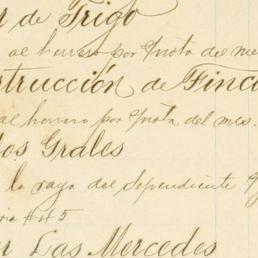 de Trigo
al herrero por Yguala del mes
strucción de Finca
al herrero por Yguala del mes.
os Grales
la raya del dependiente
#5
Las Mercedes